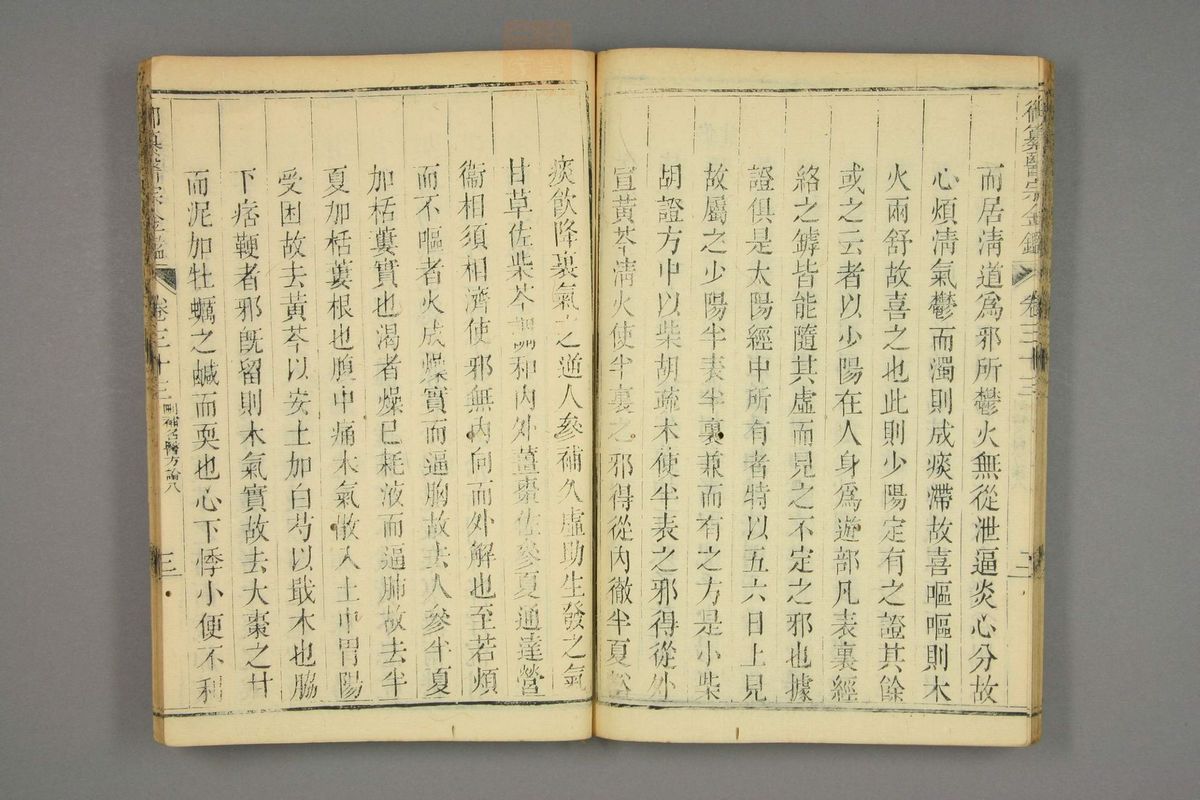 御纂醫宗金鑑 卷三十三 二
而居清道爲邪所鬱火無從泄逼炎心分故
心煩清氣鬱而濁則成痰滯故喜嘔嘔則木
火兩舒故喜之也此則少陽定有之證其餘
或之云者以少陽在人身爲遊部凡表裏經
絡之罅皆能隨其虛而見之不定之邪也據
證俱是太陽經中所有者特以五六日上見
故屬之少陽半表半裏兼而有之方是小柴
胡證方中以柴胡疏木使半表之邪得從外
宣黃芩清火使半裏之邪得從內徹半夏
痰飲降裏氣之逆人參補久虛助生發之氣
甘草佐柴芩調和內外薑棗佐參夏通達營
衞相須相濟使邪無內向而外解也至若煩
而不嘔者火成燥實而逼胸故去人參半夏
加栝蔞實也渴者燥已耗液而逼肺故去半
夏加栝蔞根也腹中痛木氣散入土中胃陽
受困故去黃芩以安土加白芍以戢木也脇
下痞鞕者邪旣留則木氣實故去大棗之甘
而泥加牡蠣之鹹而耎也心下悸小便不利
御纂醫宗金鑑 卷三十三 刪補名醫方論八 三